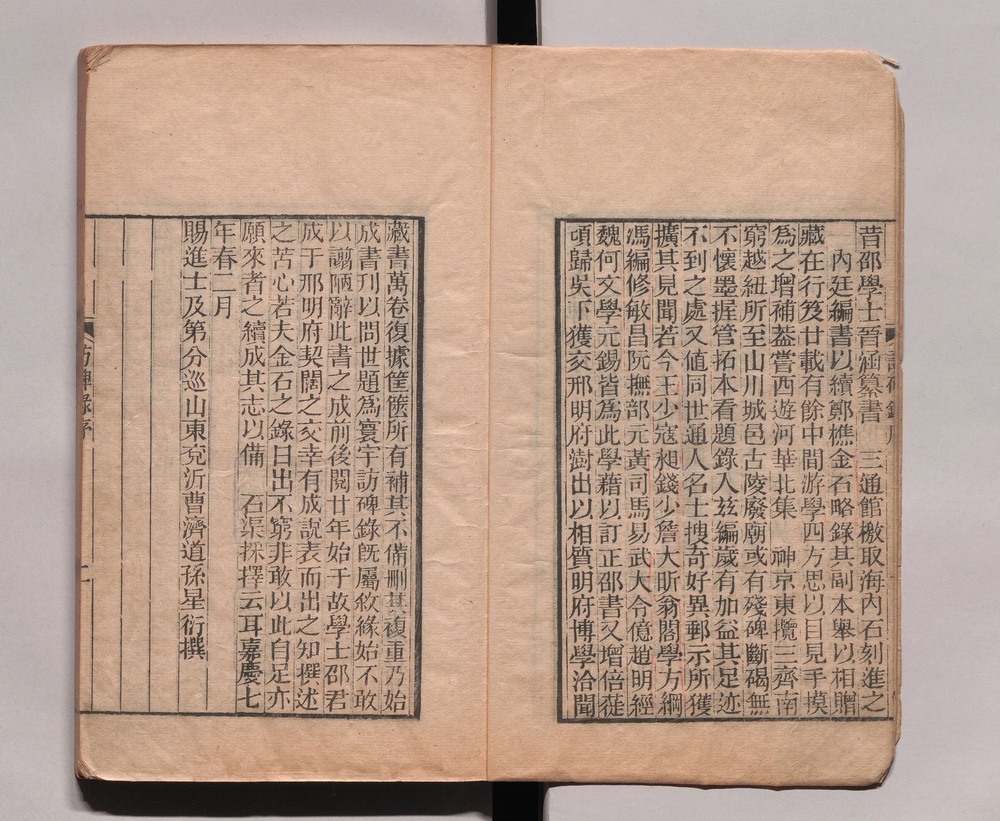 昔邵學士晉涵纂書　三通館檄取海內石刻進之
內廷編書以續鄭樵金石略錄其副本舉以相贈
藏在行笈廿載有餘中間游學四方思以目見手摸
爲之增補葢嘗西遊河華北集　神京東攬三齊南
窮越紐所至山川城邑古陵廢廟或有殘碑斷碣無
不懷墨握管拓本看題錄入玆編歲有加益其足迹
不到之處又値同世通人名士搜奇好異郵示所獲
擴其見聞若今王少寇昶錢少詹大昕翁閣學方綱
馮編修敏昌阮撫部元黃司馬易武大令億趙明經
魏何文學元錫皆爲此學藉以訂正邵書又增倍蓰
頃歸吳下獲交邢明府澍出以相質明府博學洽聞
藏書萬卷復據筐篋所有補其不備刪其複重乃始
成書刋以問世題爲寰宇訪碑錄旣屬敘緣始不敢
以謭陋辭此書之成前後閱廿年始于故學士邵君
成于邢明府契闊之交幸有成說表而出之知撰述
之苦心若夫金石之錄日出不窮非敢以此自足亦
願來者之續成其志以備　石渠採擇云耳嘉慶七
年春二月
賜進士及第分巡山東兗沂曹濟道孫星衍撰
訪碑錄序
二